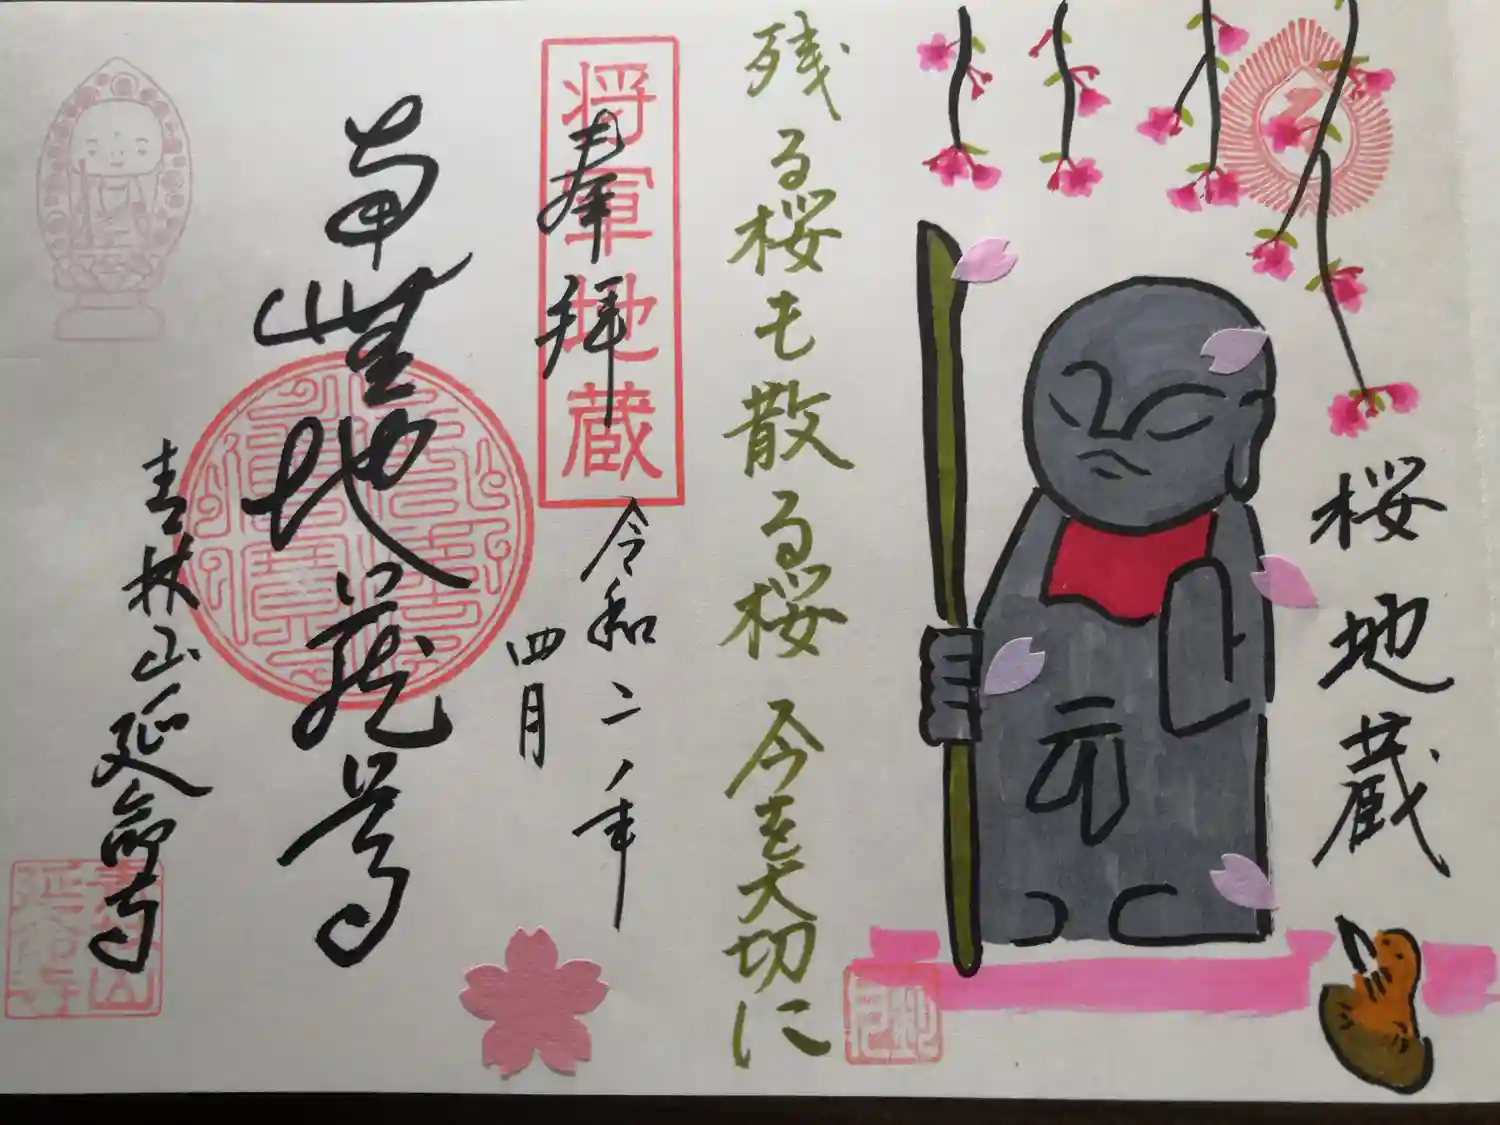 桜地蔵
残る桜も散る桜 今を大切に
奉拝
将軍地蔵
令和二年
四月
南無地蔵尊
青林山延命寺